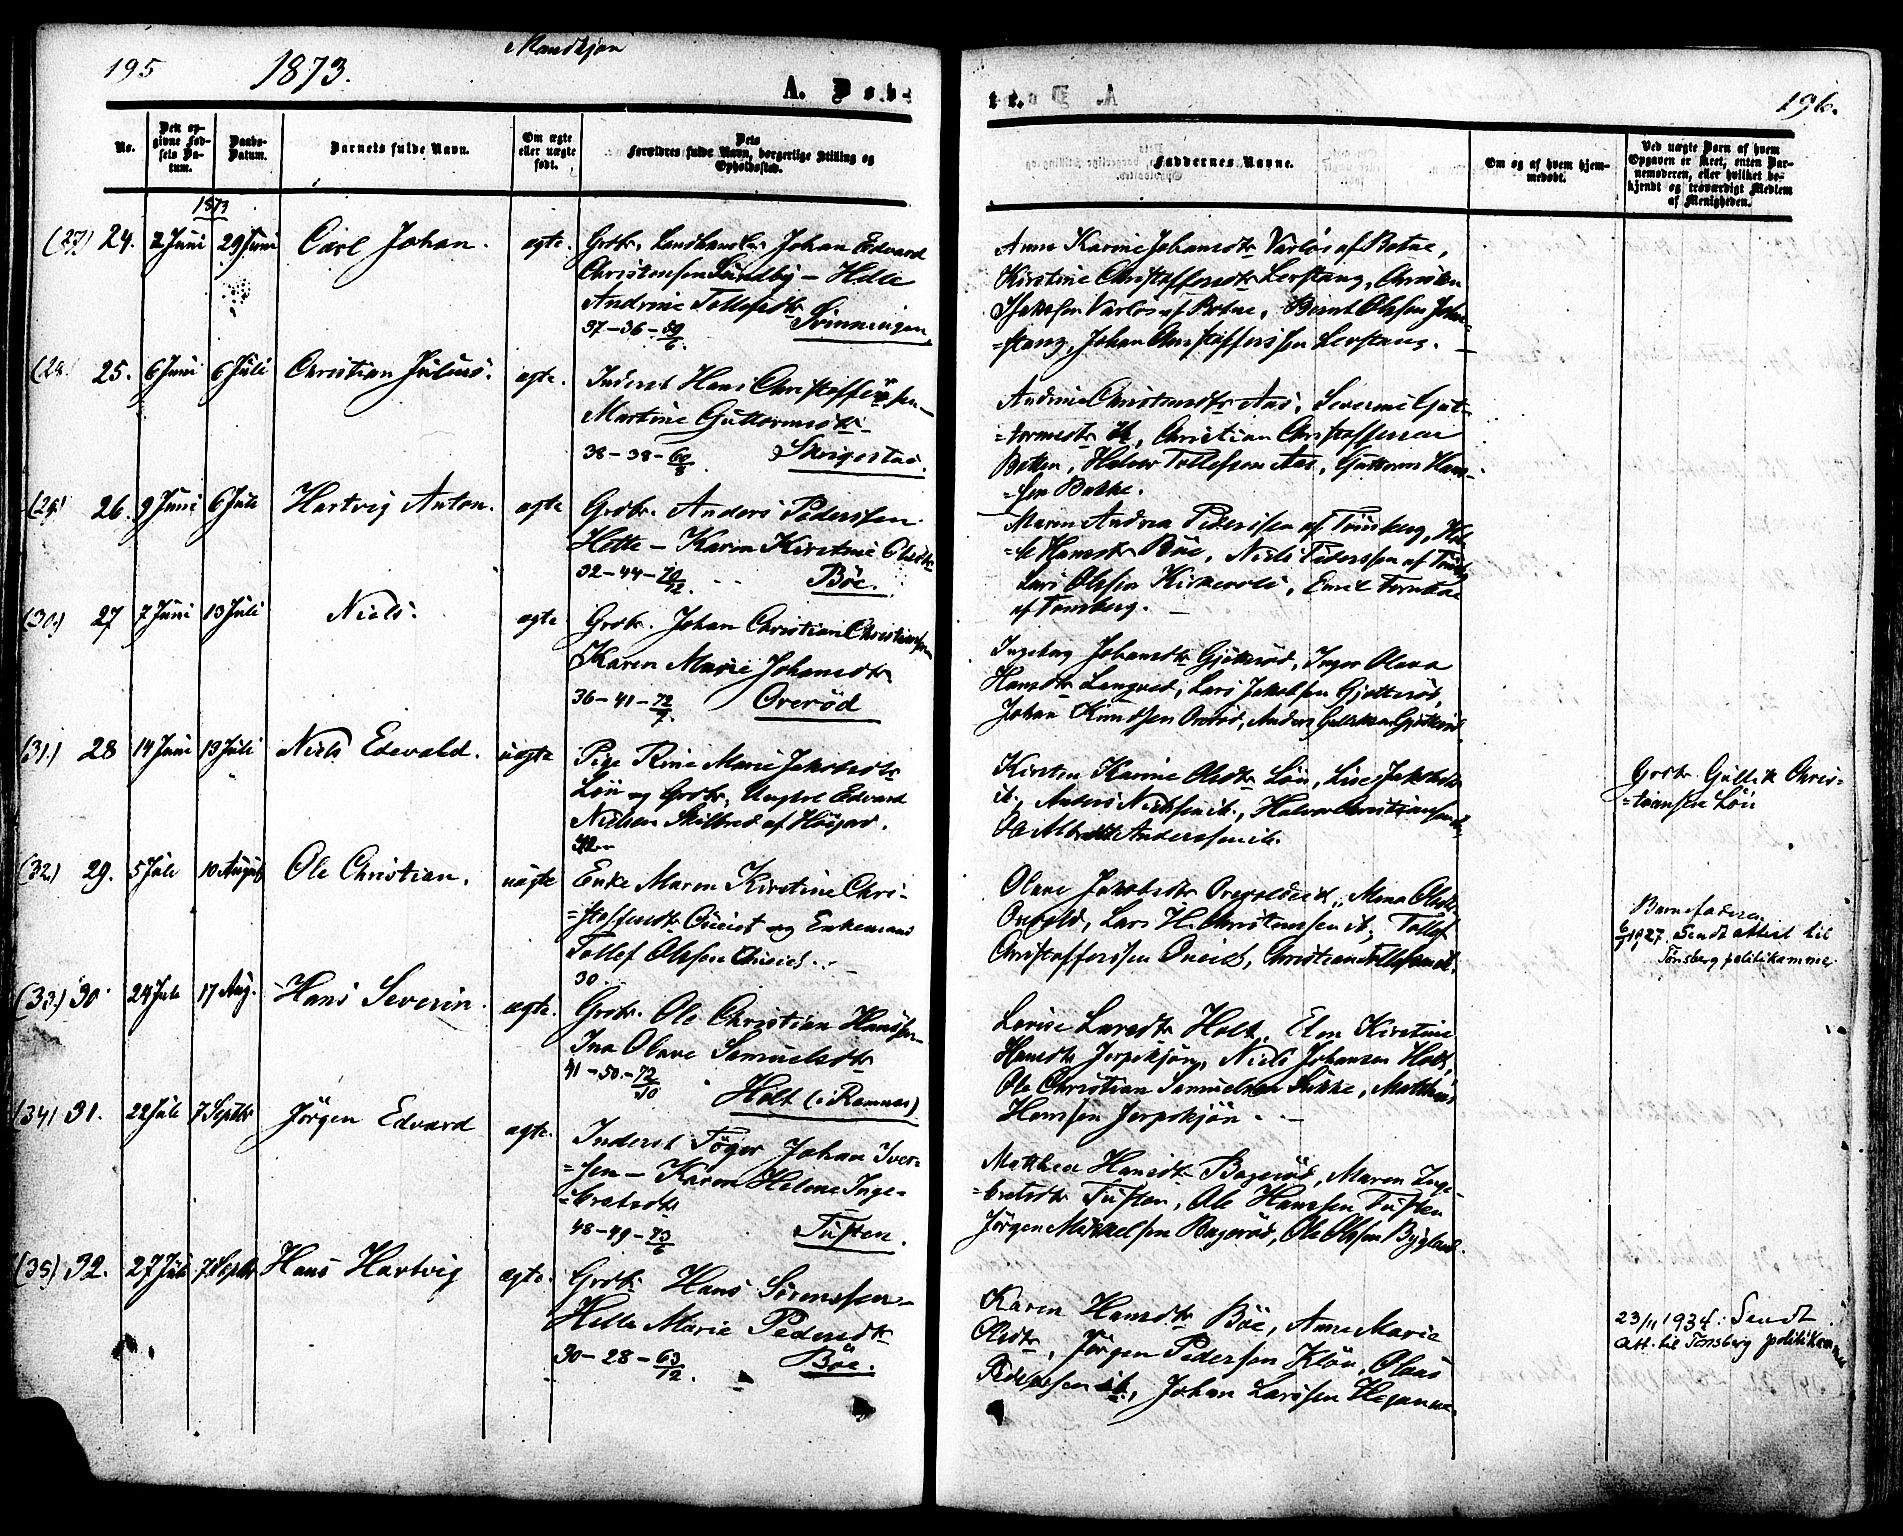 195
1873.
Mandkjøn
A. Døbte.
196.
No.
Den opgivne Fødsels Datum.
Daabs-Datum.
Barnets fulde Navn.
Om ægte eller uægte født.
Dets Forældres fulde Navn, borgerlige Stilling og Opholdssted.
Faddernes Navne.
Om og af hvem hjemmedøbt.
Ved uægte Børn af hvem Opgaven er skeet, enten Barnemoderen, eller hvilket bekjendt og troværdigt Medlem af Menigheden.
1873
(27) 24. 2 Juni 29 Juni Carl Johan. ægte. Grdbr. Landhandler Johan Edvard
Christensen Sundby – Helle
Andrine Tollefsdtr
37-36-59/6. Svinningen
Anne Karine Johansdtr Varløs af Botne,
Kirstine Christoffersdtr Lerstang, Christen
Jakobsen Varløs af Botne, Bernt Olssen
stang, Johan Christofferssen Lerstang.
25. 6 Juni 6 Juli Christian Julius. ægte. Inderst Hans Christofferssen –
Martine Guttormsdtr
38-38-60/8. Skrigestad.
Andrine Christensdtr Aas, Severine Gut-
=tormsdtr ib, Christian Christoffersen
Botten, Halvor Tollefssen Aas, Guttorm Hans-
=sen Bakke.
(29) 26. 9 Juni 6 Juli Hartvig Anton. ægte Grdbr. Anders Pederssen
Hotte – Karen Kirstine Olsdtr
32-44-70/12. Bøe.
Maren Andrea Pederssen af Tønsberg, Hel-
=le Hansdtr Bøe, Niels Pederssen af Tønsbg
Lars Olssen Kirkevold, Emil
af Tønsberg.
(30) 27 7 Juni 13 Juli Niels. ægte. Grdbr. Johan Christian Christianssen
Karen Marie Johansdtr
36-41-72/7. Overød
Ingeborg Johansdtr Gjøtterød, Inger Olava
Hansdtr Langved, Lars Jakobsen Gjøtterød,
Johan Knudssen Overød, Anders Gulliksen Gjøtterød.
(31.) 28 14 Juni 13 Juli Niels Edevald. uægte Pige Rine Marie Jakobsdtr
Løv og Grdbr. Ungkrl Edvard
Nielsen Skilbred af Høijord.
Kirsten Karine Olsdtr Løv, Lise Jakobsdtr
ib., Anders Nielssen ib., Halvor Christianssen ib
Ole Albrekt Anderssen ib.
Grdbr. Gullik Chris-
=tianssen Løv
(32.) 29. 5 Juli 10 August Ole Christian. uægte Enke Maren Kirstine Chri-
=stoffersdtr Qveist og Enkemand
Tollef Olssen Qveist.
30.
Olave Jakobsdtr ib., Mina Olsdtr
Lars H. Christenssen ib, Tollef
Christofferssen Qveist, Christian Tollefssen ib.
Barnefaderen
6/7 1927 Sendt attest til
Tønsberg politikammer
(33.) 30 24 Juli 17 Aug. Hans Severin. ægte. Grdbr. Ole Christian Hanssen –
Ina Olave Samuelsdtr
41-50-72/10 Holt (i Ramnes)
Lovise Larsdtr Holt, Elen Kirstine
Hansdtr Jerpekjøn, Niels Johansen Holt,
Ole Christian Samuelsen Sukke, Mathias
Hanssen Jerpekjøn.
(34) 31. 22 Juli 7 Septbr Jørgen Edvard ægte. Inderst Johan Iver-
=sen – Karen Helene Inge-
=bretsdtr
48-49-73/6 Tuften.
Mathea Hansdtr Bagerød, Maren Inge-
=bretsdtr Tuften, Ole Hanssen Tuften
Jørgen Mikkelsen Bagerød, Ole Olssen Bygland.
(35) 32. 27 Juli 7 Septbr Hans Hartvig ægte. Grdbr. Hans Sørenssen –
Helle Marie Pedersdtr
30-28-63/12. Bøe.
Karen Hansdtr Bøe, Anne Marie
Olsdtr, Jørgen Pedersen Kløv, Olaus
Pederssen ib., Johan Larssen
23/11 1934: Sendt
att. til Tønsberg politikammer